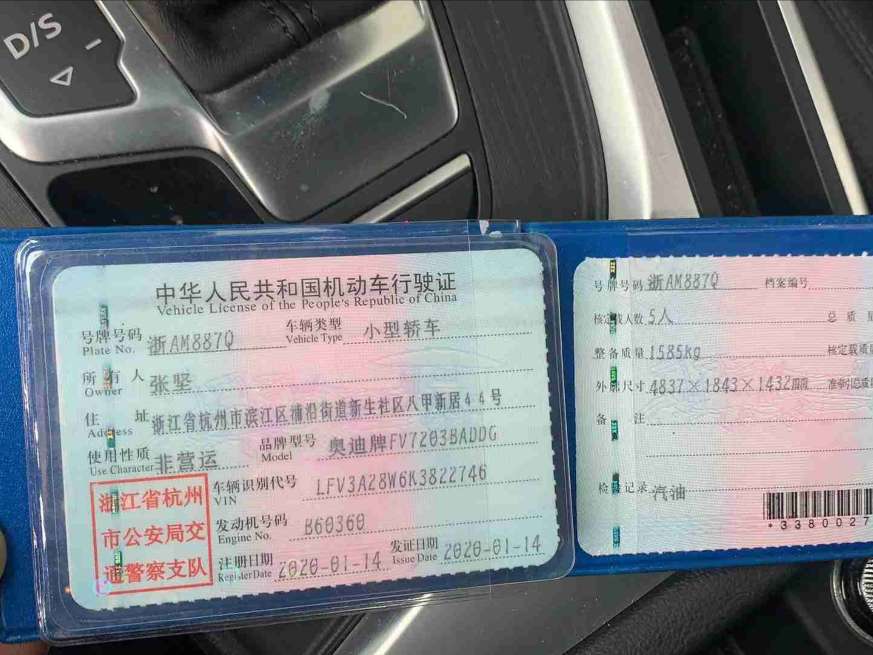 D/S
中华人民共和国机动车行驶证
Vehicle License of the People's Republic of China
号牌号码 浙AM887Q 车辆类型 小型轿车
Plate No. Vehicle Type
所有人 张坚
Owner
住址 浙江省杭州市滨江区浦沿街道新生社区八甲新居44号
Address
使用性质 非营运 品牌型号 奥迪牌FV7203BADDG
Use Character Model
浙江省杭州
市公安局交
通警察支队
车辆识别代号 LFV3A28W6K3822746
VIN
发动机号码 B60360
Engine No.
注册日期 2020-01-14 发证日期 2020-01-14
Register Date Issue Date
号牌号码 浙AM887Q 档案编号
核定载人数 5人 总质量
整备质量 1585kg 核定载质
外廓尺寸 4837×1843×1432mm 准牵引总质
备注
检验记录 汽油
*3380027